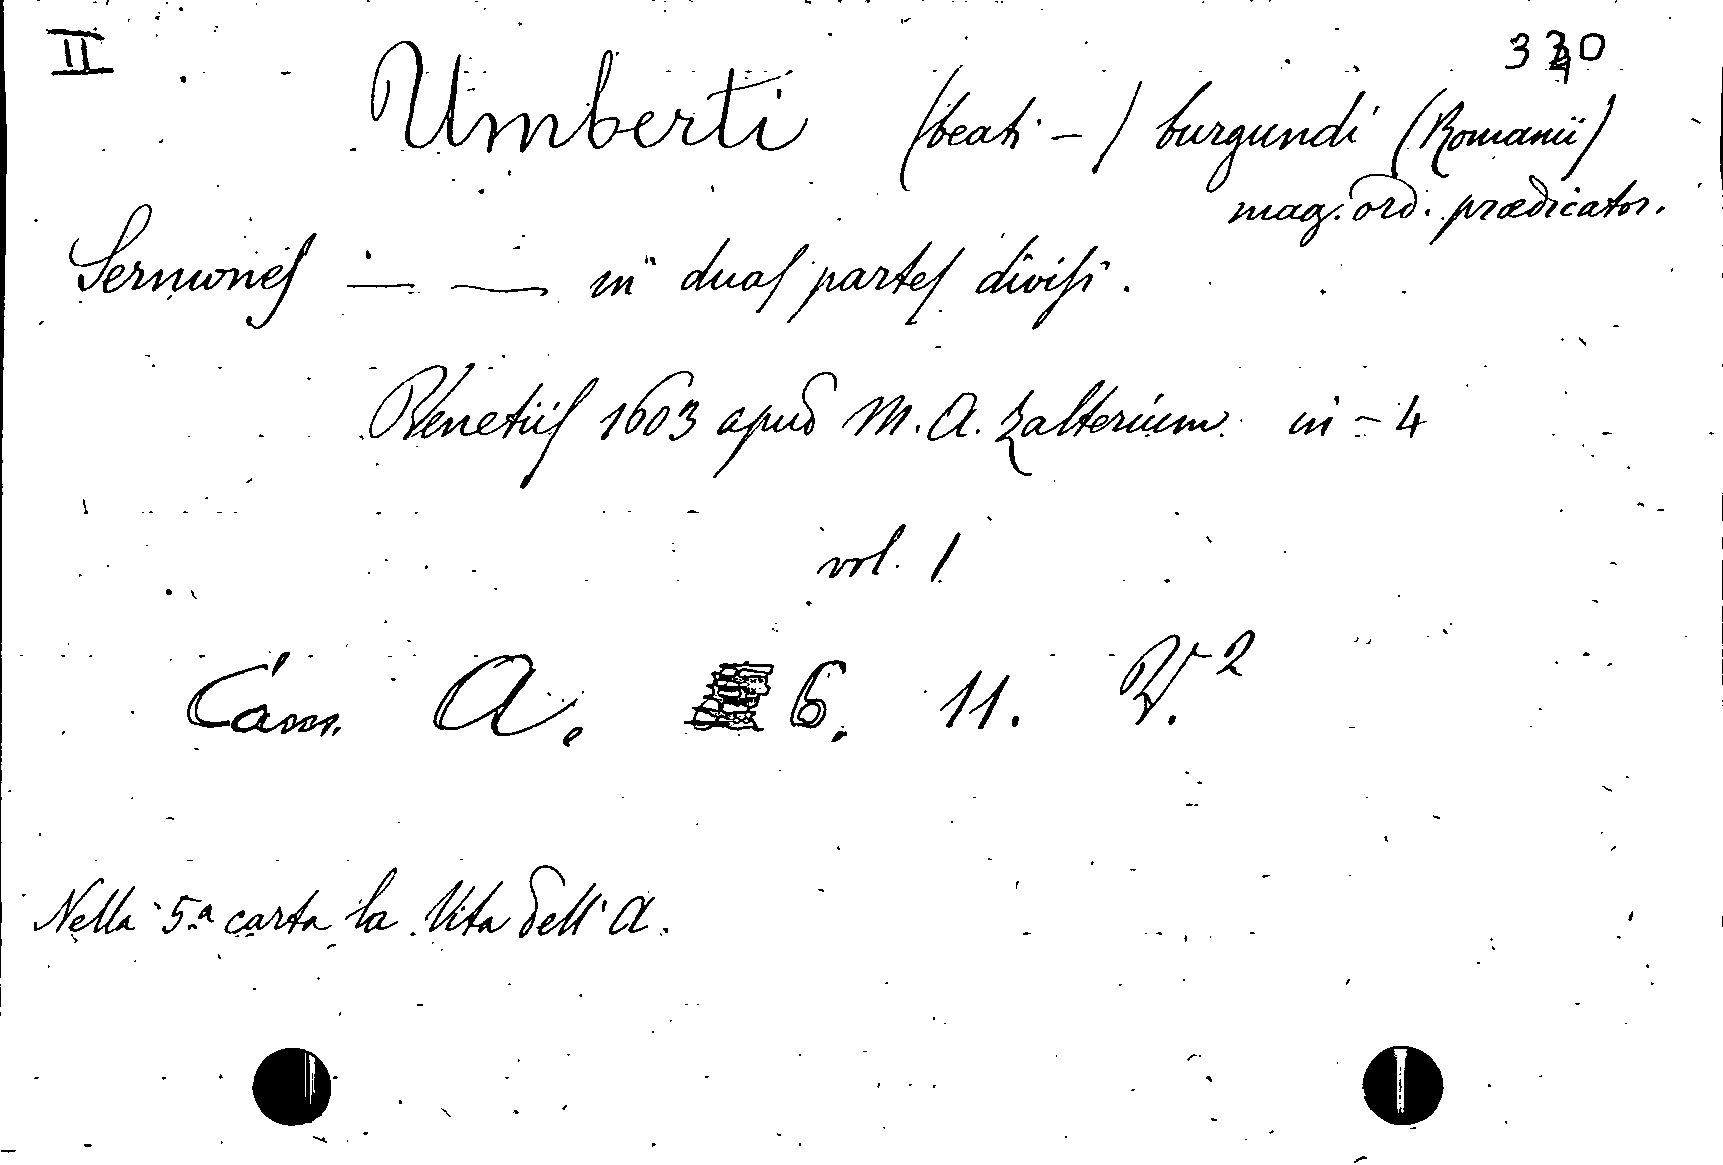 II 340
Umberti (beati - ) burgundi (Romanii)
mag. ord. prædicator.
Sermones — — in duas partes divisi.
Venetiis 1603 apud M. A. Zalterium in - 4
vol. 1
Cam. A. 6. 11. V.2
Nella 5.a carta la Vita dell' A.